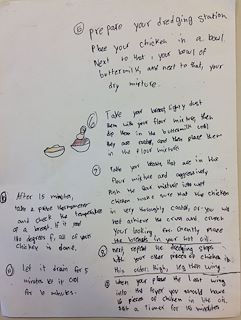 prepare your dredging station
Place your chicken in a bowl.
Next to that, your bowl of
buttermilk, and next to that, your
dry mixture.
Take your breast, lightly dust
them with your flour mixture, then
dip them in the buttermilk until
they are coated, and then place them
in the flour mixture
Take your breasts that are in the
flour mixture and aggressively
push the flour mixture into wet
chicken make sure that the chicken
is very thoroughly coated, or you will
not achieve the crust and crunch
your looking for. Gently place
the breasts in your hot oil.
next, repeat the dredging steps
with your other pieces of chicken in
this order: thigh, leg then wing
when you place the last wing
into the fryer you should have
pieces of chicken in the oil.
Set a timer for 15 minutes
After 15 minutes,
take a fry thermometer
and check the temperature
of a breast. if it read
180 degrees f, all of your
chicken is done.
let it drain for 5
minutes let it cool
for 10 minutes.